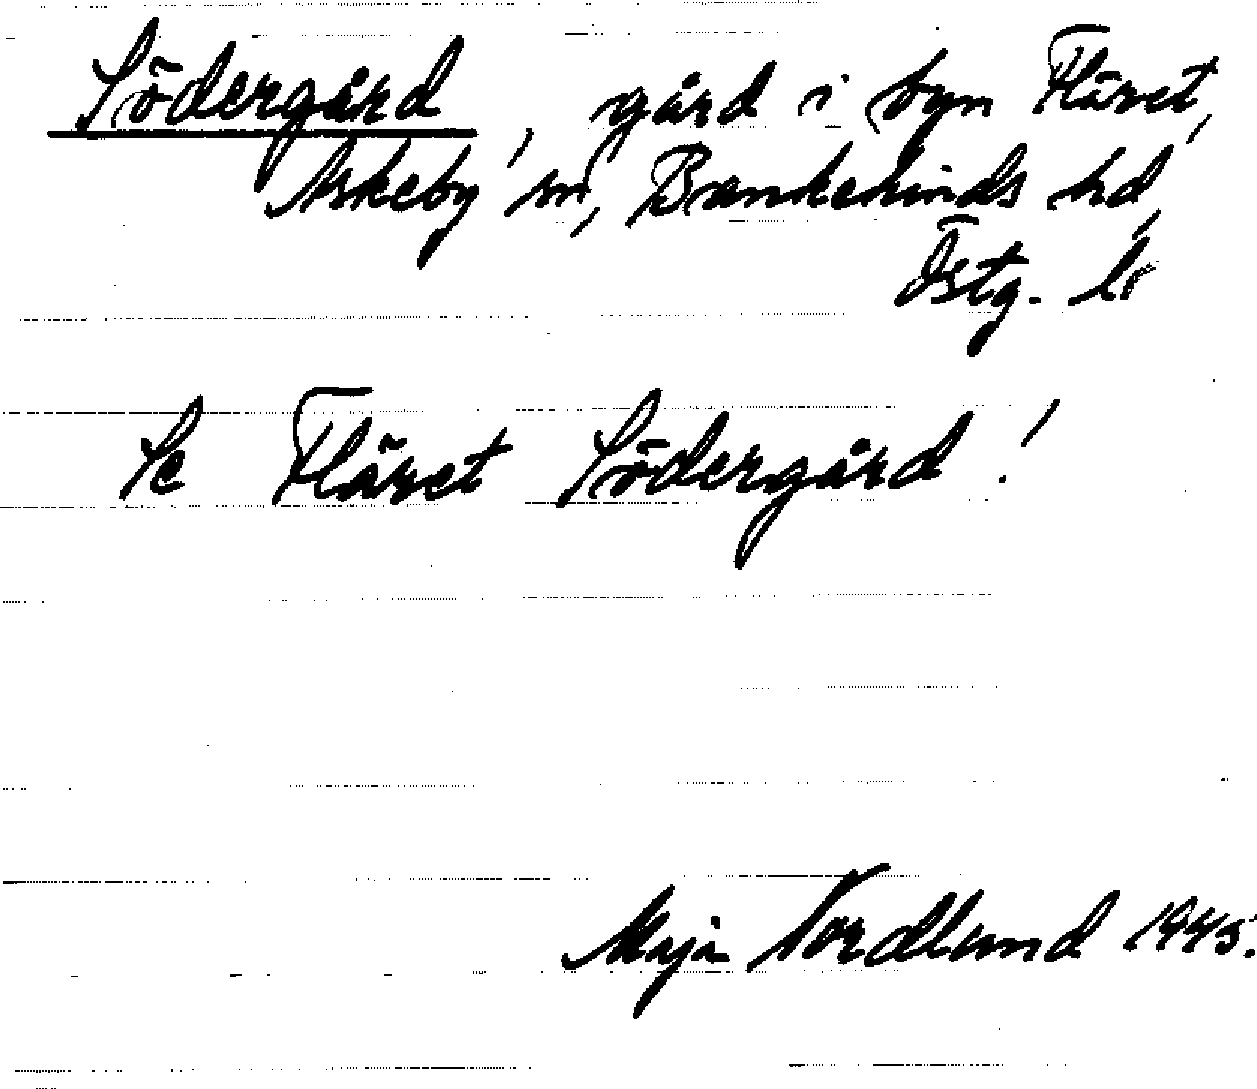 Södergård, gård i byn Fläret,
Askeby sn, Bankekinds hd,
Östg. lr
Se Fläret Södergård!
Maja Nordlund 1945.